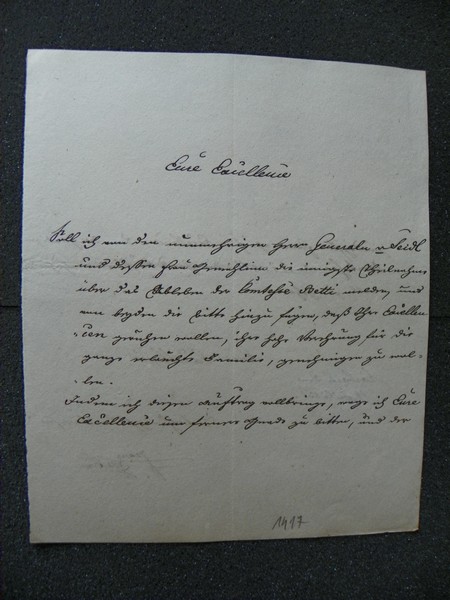 Eure Excellenz
Soll ich von dem nunmehrigen Herr Generalen v Seidl
und dessen Frau Gemahlinn die innigste Theilnahme
über das Ableben der Comtesse Betti melden, und
von beyden die Bitte hinzu fügen, daß Ihro Excellen-
zen geruhen wollen, ihre hohe Verehrung für die
ganze erlauchte Familie, genehmigen zu wol-
len.
Indem ich diesen Auftrag vollbringe, wage ich Eure
Excellenz um fernere Gnade zu bitten, und der
1417